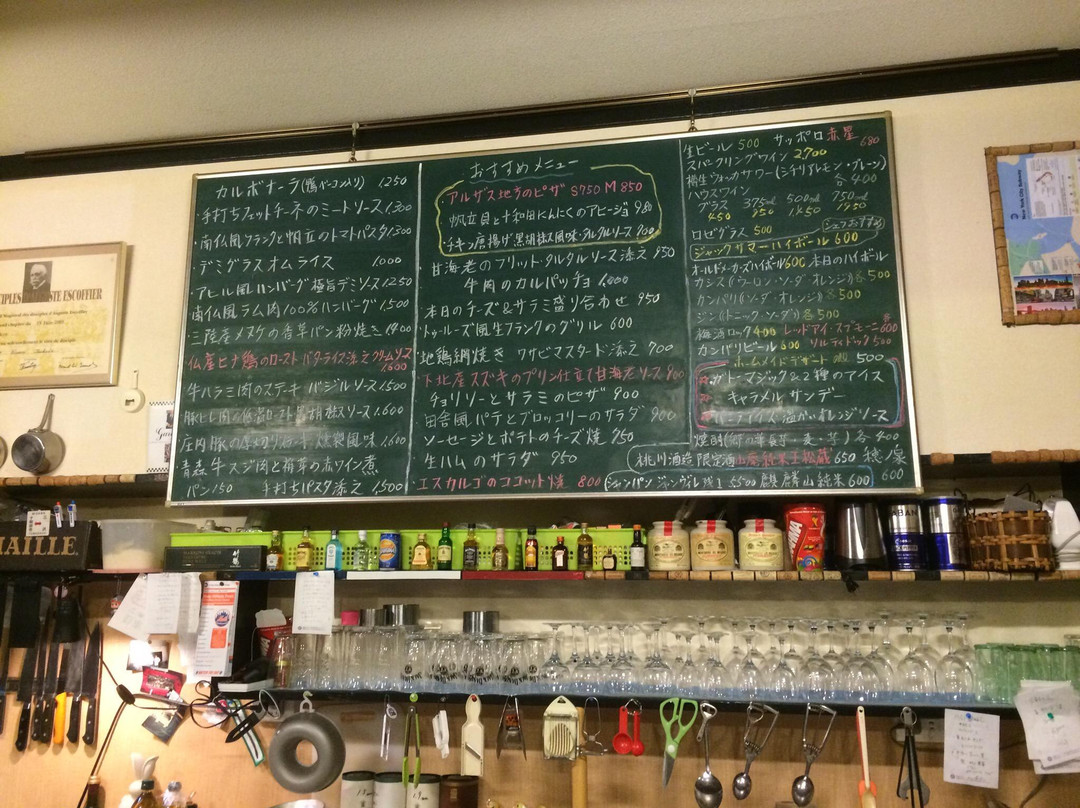 カルボナーラ(鴨ベーコン入り) 1,250
・手打ちフェットチーネのミートソース 1,300
・南仏風フランクと帆立のトマトパスタ 1,300
・デミグラスオムライス 1,000
・アヒル風ハンバーグ 極旨デミソース 1,250
南仏風ラム肉100%ハンバーグ 1,500
三陸産メヌケの香草パン粉焼き 1,400
仏産ヒナ鶏のロースト バターライス添え クリームソース
1,600
牛ハラミ肉のステーキ バジルソース 1,500
豚ヒレ肉の低温ロースト 胡椒ソース 1,600
庄内豚の厚切り
風味 1,600
青森牛スジ肉と
の赤ワイン煮
パン150 手打ちパスタ添え 1,500
おすすめメニュー
・アルザス地方のピザ S750 M850
帆立貝と十和田にんにくのアヒージョ 980
・チキン唐揚げ 黒胡椒ス風味・タルタルソース 700
甘海老のフリット・タルタルソース添え 850
牛肉のカルパッチョ 1,000
本日のチーズ&サラミ盛り合わせ 950
トゥールーズ風生フランクのグリル 600
地鶏網焼き ワサビマスタード添え 700
下北産スズキのプリン仕立て甘海老ソース 900
チョリソーとサラミのピザ 900
田舎風パテとブロッコリーのサラダ 900
ソーセージとポテトのチーズ焼 950
生ハムのサラダ 950
・エスカルゴのココット焼 800
生ビール 500 サッポロ赤星 680
スパークリングワイン 2,700
樽生ウォッカサワー(シチリアレモン・プレーン)
各400
ハウスワイン
グラス 375ml 500ml 750ml
450 950 1250 1950
ロゼグラス 500 シェフおすすめ
ジャックサマーハイボール 600
オールドメーカーズハイボール 600 本日のハイボール
カシス(ウーロン・ソーダ・オレンジ) 各500
カンパリ(ソーダ・オレンジ) 各500
ジン(トニック・ソーダ) 各500
梅酒ロック 400 レッドアイ・スプモーニ 各600
カンパリビール 600 ソルティドッグ 500
ホームメイドデザート 500
ガトーマジック&2種のアイス
キャラメル サンデー
バニラアイス 温かいオレンジソース
焼酎(
芋・麦・芋) 各400
桃川酒造 限定酒
純米
650 穂ノ泉
600
シャンパン ジャンヴレ
5500 麒麟山純米 600
DISCIPLES D'AUGUSTE ESCOFFIER
MAILLE.